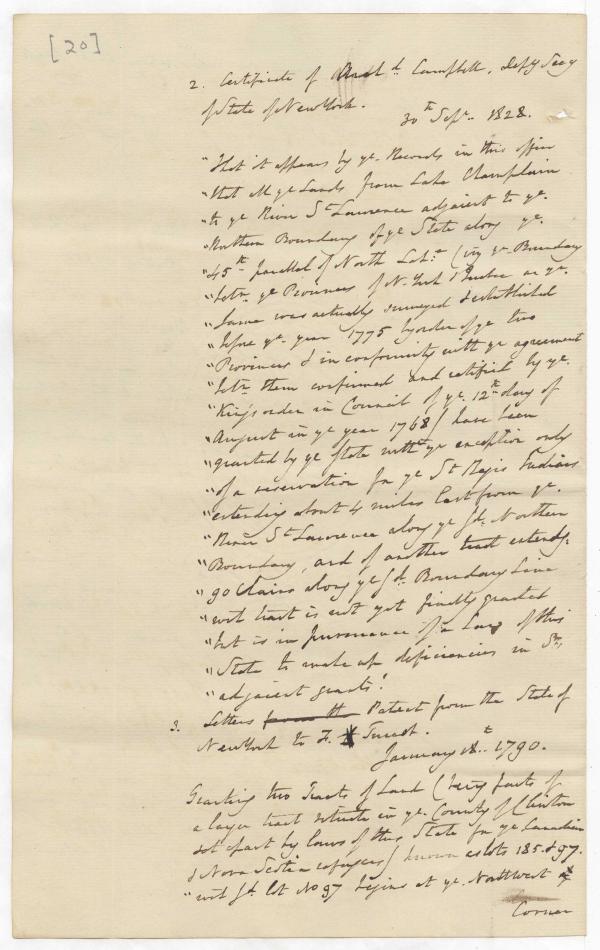 [20]
2. Certificate of Archd. Campbell, Depy Secy
of State of New York.
30th Sepr. 1828.
"That it appears by ye. Records in this office
"that all ye Lands from Lake Champlain
"to ye River St Lawrence adjacent to ye.
"Northern Boundary of ye State along ye.
"45th parallel of North Latde (viz ye. Boundary
"betn. ye Provinces of N. York & Quebec as ye.
"same was actually surveyed & established
"before ye. year 1775 by order of ye two
"Provinces & in conformity with ye agreement
"betn. them confirmed and ratified by ye.
"King's order in Council of ye. 12th day of
"August in ye year 1768) have been
"granted by ye State with ye exception only
"of a reservation for ye St Regis Indians
"extending about 4 miles East from ye.
"River St Lawrence along ye sd. Northern
"Boundary, and of another tract extendg.
"90 Chains along ye sd. Boundary Line
"wch tract is not yet finally granted
"but is in pursuance of a Law of this
"State to make up deficiencies in
"adjacent grants."
3. Letters from th Patent from the State of
New York to F. Turcot.
January 18th 1790.
Granting two Tracts of Land (being parts of
a larger tract situate in ye. County of Clinton
set apart by laws of this State for ye Canadian
& Nova Scotia refugees) known as lots 185 & 97.
"wch sd. Lot No 97 begins at ye. Northwest
Corner